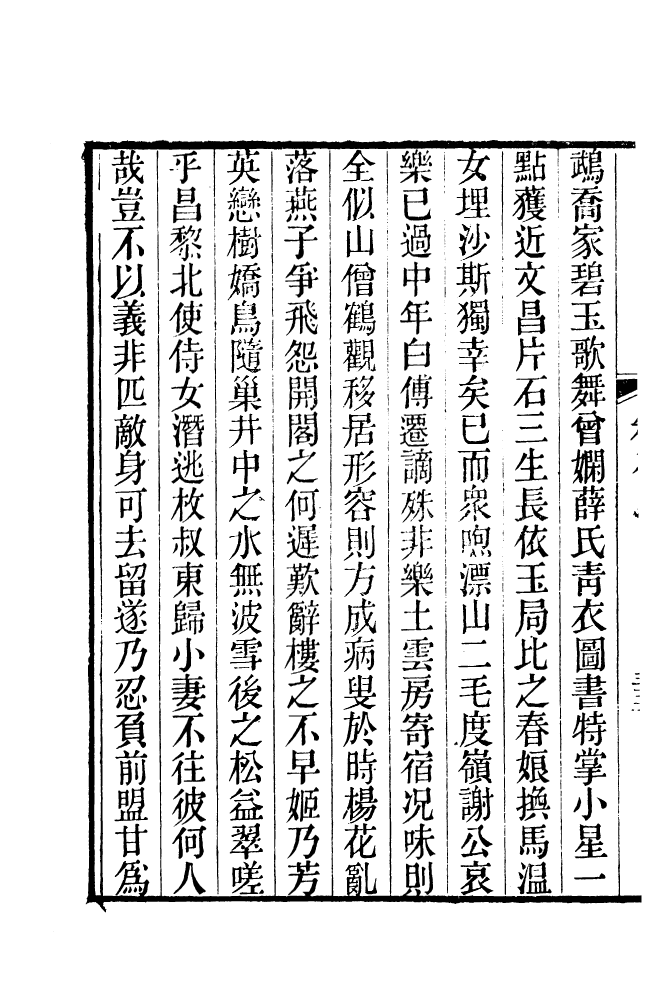 鵡喬家碧玉歌舞曾嫻薛氏靑衣圖書特掌小星一
點獲近文昌片石三生長依玉局比之春娘換馬溫
女埋沙斯獨幸矣已而衆喣漂山二毛度嶺謝公哀
樂已過中年白傅遷謫殊非樂土雲房寄宿况味則
全似山僧鶴觀移居形容則方成病叟於時楊花亂
落燕子爭飛怨開閣之何遲歎辭樓之不早姬乃芳
英戀樹嬌鳥隨巢井中之水無波雪後之松益翠嗟
乎昌黎北使侍女潛逃枚叔東歸小妻不往彼何人
哉豈不以義非匹敵身可去留遂乃忍負前盟甘爲